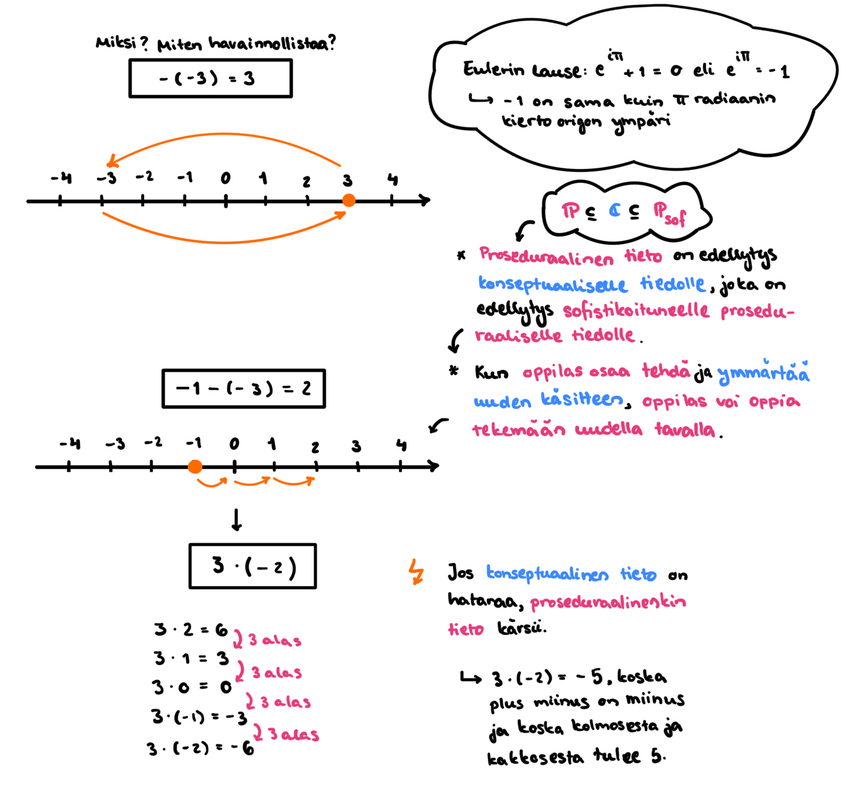 Miksi? Miten havainnollistaa?
-(-3) = 3
-4 -3 -2 -1 0 1 2 3 4
-1 - (-3) = 2
-4 -3 -2 -1 0 1 2 3 4
3 · (-2)
3 · 2 = 6
3 alas
3 · 1 = 3
3 alas
3 · 0 = 0
3 alas
3 · (-1) = -3
3 alas
3 · (-2) = -6
Eulerin lause: e^iπ + 1 = 0 eli e^iπ = -1
↳ -1 on sama kuin π radiaanin
kierto origon ympäri
ℙ ⊆ ℂ ⊆ ℙsof
* Proseduraalinen tieto on edellytys
konseptuaaliselle tiedolle, joka on
edellytys sofistikoituneelle prosedu-
raaliselle tiedolle.
* Kun oppilas osaa tehdä ja ymmärtää
uuden käsitteen, oppilas voi oppia
tekemään uudella tavalla.
Jos konseptuaalinen tieto on
hataraa, proseduraalinenkin
tieto kärsii.
↳ 3 · (-2) = -5, koska
plus miinus on miinus
ja koska kolmosesta ja
kakkosesta tulee 5.